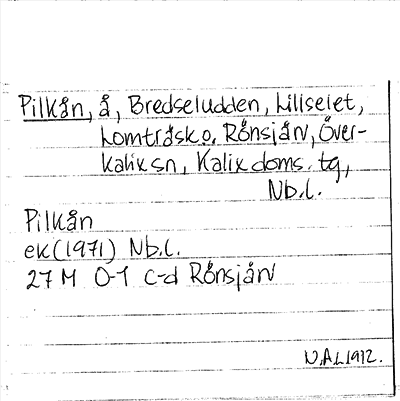 Pilkån, å, Bredseludden, Lillselet,
Lomträsk o. Rönsjärv, Över-
kalix sn, Kalix doms. tg,
Nb.l.
Pilkån
ek (1971) Nb.l.
27 M 0-1 c-d Rönsjärv
N.A.L. 1972.